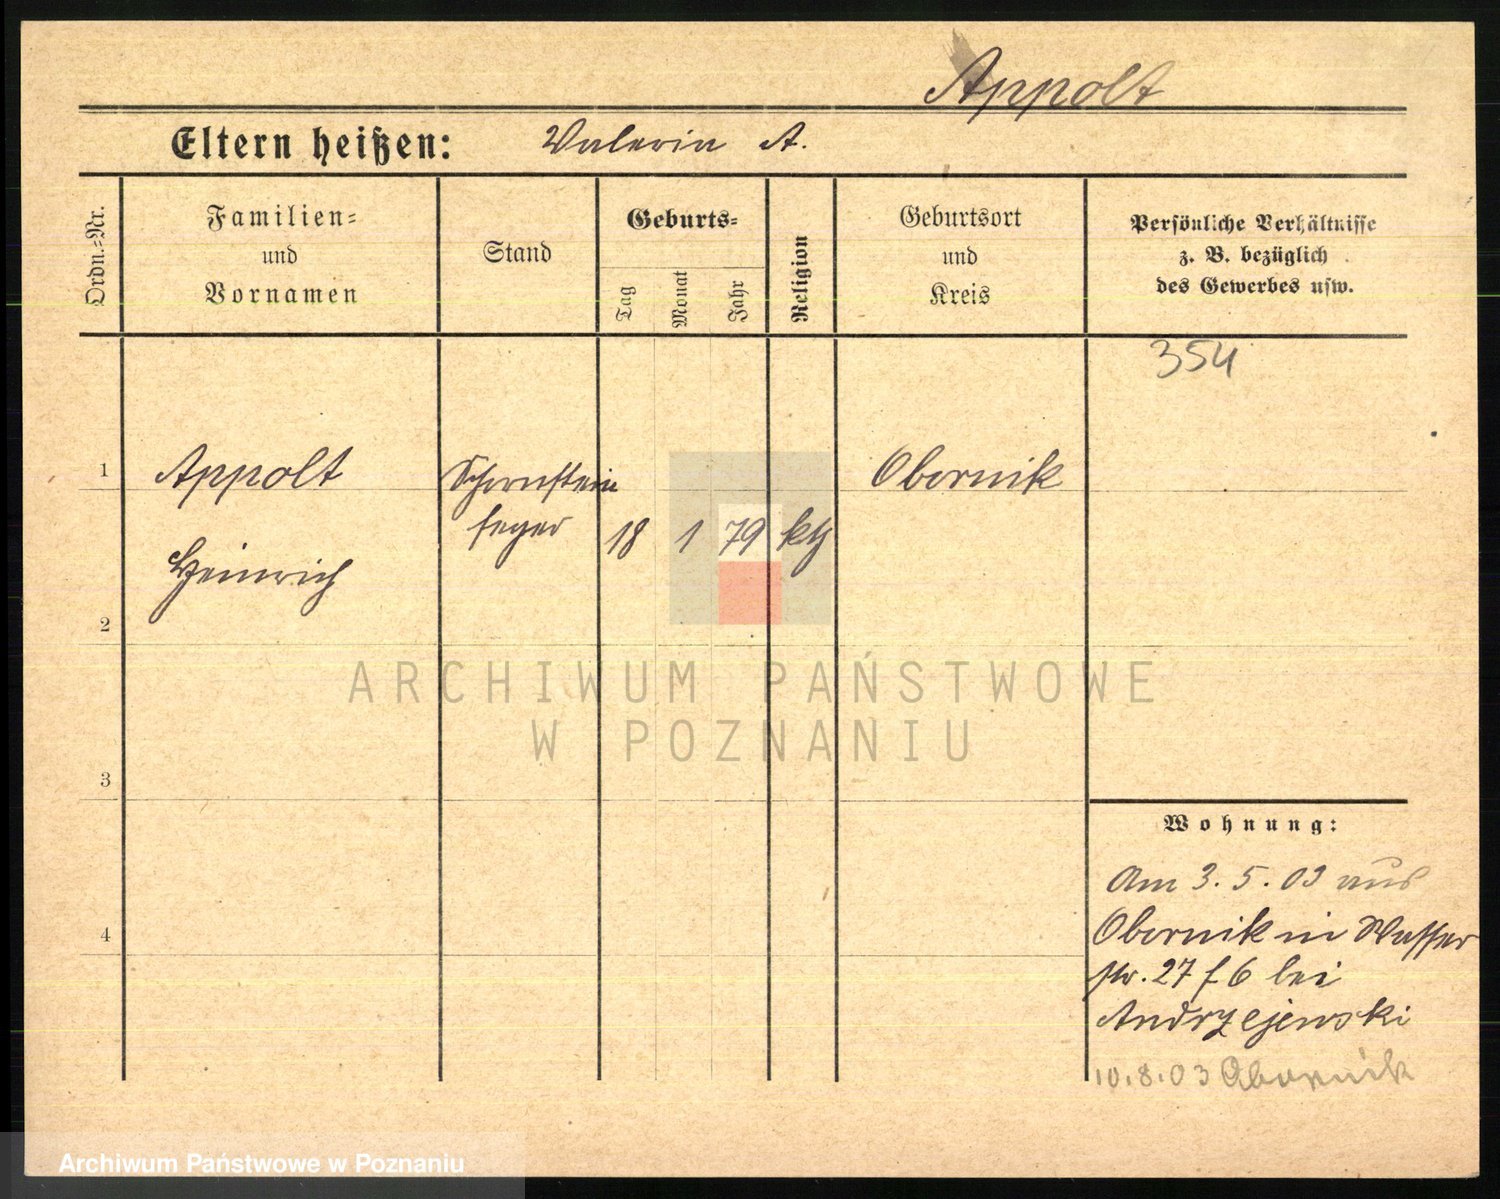 Appolt
Eltern heißen: Valeria A.
Ordn.=Nr.
Familien=
und
Vornamen
Stand
Geburts=
Tag
Monat
Jahr
Religion
Geburtsort
und
Kreis
Persönliche Verhältnisse
z. B. bezüglich
des Gewerbes usw.
354
1
Appolt
Schornstein
Obornik
feger
18 1 79 kth
Heinrich
2
ARCHIWUM PAŃSTWOWE
W POZNANIU
3
Wohnung:
Am 3. 5. 03 aus
4
Obornik in Wasser
str. 27 f 6 bei
Andrzejewski
10.8.03 Obornik
Archiwum Państwowe w Poznaniu